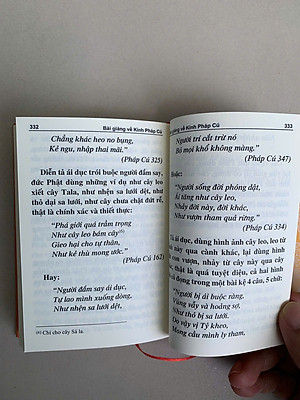 332 Bài giảng về Kinh Pháp Cú
Chẳng khác heo no bụng,
Kẻ ngu, nhập thai mãi."
(Pháp Cú 325)
Diễn tả ái dục trói buộc người đắm say,
đức Phật dùng những ví dụ như cây leo
xiết cây Tala, như nhện sa lưới dệt, như
thỏ đại sa lưới, như cây chưa chặt đứt rễ,
thật là chính xác và thiết thực:
"Phá giới quá trầm trọng
Như cây leo bám cây(6)
Gieo hại cho tự thân,
Như kẻ thù mong ước."
(Pháp Cú 162)
Hay:
"Người đắm say ái dục,
Tự lao mình xuống dòng,
Như nhện sa lưới dệt,
(6) Chỉ cho cây Sà la.
giảng về Kinh Pháp Cú 333
Người trí cắt trừ nó
Bỏ mọi khổ không màng."
(Pháp Cú 347)
Hoặc:
"Người sống đời phóng dật,
Ái tăng như cây leo,
Nhảy đời này, đời khác,
Như vượn tham quả rừng."
(Pháp Cú 334)
ái dục, dùng hình ảnh cây leo, leo từ
qua cành khác, lại dùng hình
con vượn, nhảy từ cây này qua cây
thật là quả tuyệt diệu, cả hai hình
đọng trong một bài kệ 4 câu, 5 chữ:
"Người bị ái buộc ràng,
Vùng vẫy và hoảng sợ,
Như thỏ bị sa lưới.
Do vậy vị Tỷ kheo,
Mong cầu mình ly tham,